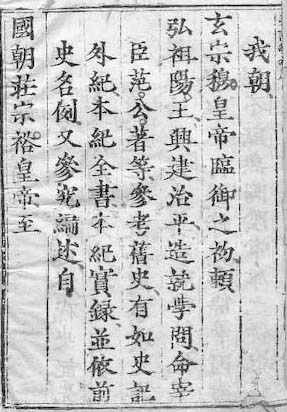 我朝
玄宗穆皇帝臨御之初頼
弘祖陽王興建治平造就學問命宰
臣范公著等參考舊史有如史記
外紀本紀全書本紀實錄並依前
史名例又參究編述自
國朝莊宗裕皇帝至